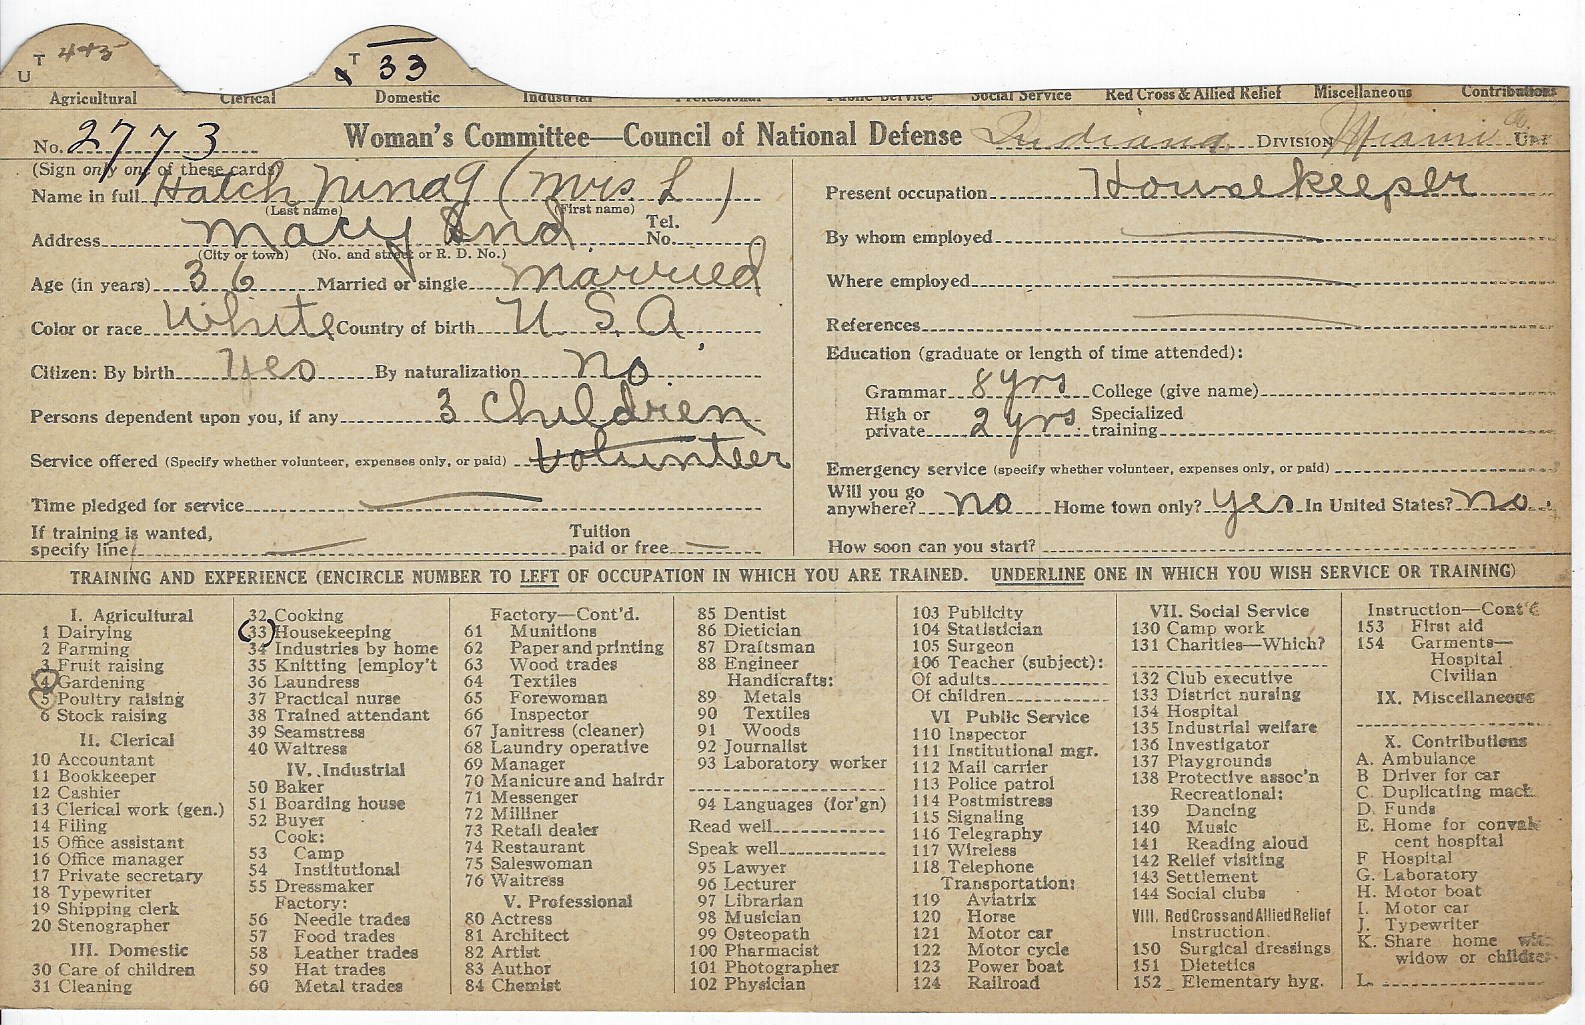 T 4+5 T 33
U
Agricultural Clerical Domestic Industrial Professional Public Service Social Service Red Cross & Allied Relief Miscellaneous Contributions
No. 2773 Woman's Committee—Council of National Defense Indiana DIVISION Miami Co. UNIT
(Sign only one of these cards)
Name in full Hatch Nina G (Mrs. L )
(Last name) (First name)
Address Macy Ind Tel. No.
(City or town) (No. and street or R. D. No.)
Age (in years) 36 Married or single married
Color or race White Country of birth U. S. A.
Citizen: By birth Yes By naturalization no.
Persons dependent upon you, if any 3 children
Service offered (Specify whether volunteer, expenses only, or paid) Volunteer
Time pledged for service
If training is wanted, specify line Tuition paid or free
Present occupation Housekeeper
By whom employed
Where employed
References
Education (graduate or length of time attended):
Grammar 8 yrs College (give name)
High or private 2 yrs. Specialized training
Emergency service (specify whether volunteer, expenses only, or paid)
Will you go anywhere? no Home town only? yes In United States? no.
How soon can you start?
TRAINING AND EXPERIENCE (ENCIRCLE NUMBER TO LEFT OF OCCUPATION IN WHICH YOU ARE TRAINED. UNDERLINE ONE IN WHICH YOU WISH SERVICE OR TRAINING)
I. Agricultural
1 Dairying
2 Farming
3 Fruit raising
4 Gardening
5 Poultry raising
6 Stock raising
II. Clerical
10 Accountant
11 Bookkeeper
12 Cashier
13 Clerical work (gen.)
14 Filing
15 Office assistant
16 Office manager
17 Private secretary
18 Typewriter
19 Shipping clerk
20 Stenographer
III. Domestic
30 Care of children
31 Cleaning
32 Cooking
(33) Housekeeping
34 Industries by home
35 Knitting [employ't
36 Laundress
37 Practical nurse
38 Trained attendant
39 Seamstress
40 Waitress
IV. Industrial
50 Baker
51 Boarding house
52 Buyer
Cook:
53 Camp
54 Institutional
55 Dressmaker
Factory:
56 Needle trades
57 Food trades
58 Leather trades
59 Hat trades
60 Metal trades
Factory—Cont'd.
61 Munitions
62 Paper and printing
63 Wood trades
64 Textiles
65 Forewoman
66 Inspector
67 Janitress (cleaner)
68 Laundry operative
69 Manager
70 Manicure and hairdr
71 Messenger
72 Milliner
73 Retail dealer
74 Restaurant
75 Saleswoman
76 Waitress
V. Professional
80 Actress
81 Architect
82 Artist
83 Author
84 Chemist
85 Dentist
86 Dietician
87 Draftsman
88 Engineer
Handicrafts:
89 Metals
90 Textiles
91 Woods
92 Journalist
93 Laboratory worker
94 Languages (for'gn)
Read well
Speak well
95 Lawyer
96 Lecturer
97 Librarian
98 Musician
99 Osteopath
100 Pharmacist
101 Photographer
102 Physician
103 Publicity
104 Statistician
105 Surgeon
106 Teacher (subject):
Of adults
Of children
VI Public Service
110 Inspector
111 Institutional mgr.
112 Mail carrier
113 Police patrol
114 Postmistress
115 Signaling
116 Telegraphy
117 Wireless
118 Telephone
Transportation:
119 Aviatrix
120 Horse
121 Motor car
122 Motor cycle
123 Power boat
124 Railroad
VII. Social Service
130 Camp work
131 Charities—Which?
132 Club executive
133 District nursing
134 Hospital
135 Industrial welfare
136 Investigator
137 Playgrounds
138 Protective assoc'n
Recreational:
139 Dancing
140 Music
141 Reading aloud
142 Relief visiting
143 Settlement
144 Social clubs
VIII. Red Cross and Allied Relief
Instruction.
150 Surgical dressings
151 Dietetics
152 Elementary hyg.
Instruction—Cont'd
153 First aid
154 Garments—
Hospital
Civilian
IX. Miscellaneous
X. Contributions
A. Ambulance
B Driver for car
C. Duplicating mach.
D. Funds
E. Home for convales
cent hospital
F Hospital
G. Laboratory
H. Motor boat
I. Motor car
J. Typewriter
K. Share home with
widow or children
L.